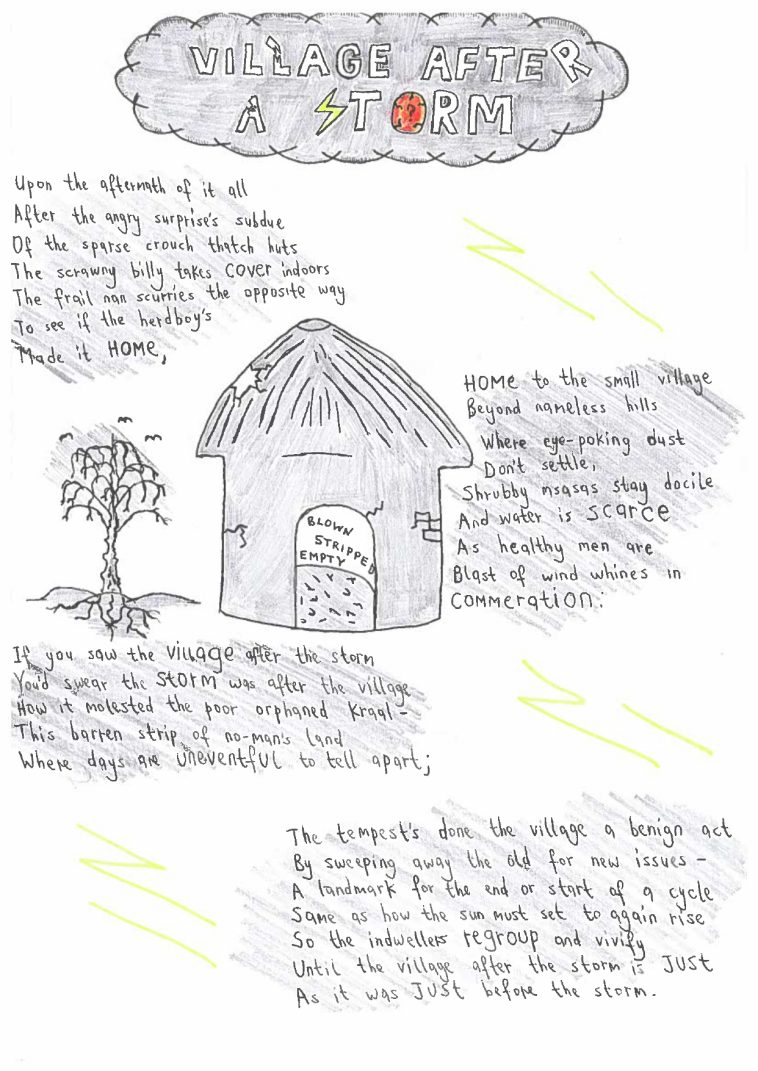 VILLAGE AFTER
A STORM
Upon the aftermath of it all
After the angry surprise's subdue
Of the sparse crouch thatch huts
The scrawny billy takes COVER indoors
The frail nan scurries the opposite way
To see if the herdboy's
Made it HOME,
HOME to the small village
Beyond nameless hills
Where eye-poking dust
Don't settle,
Shrubby msasas stay docile
And water is scarce
As healthy men are
Blast of wind whines in
COMMERATION:
BLOWN
STRIPPED
EMPTY
If you saw the village after the storm
You'd swear the STORM was after the village
How it molested the poor orphaned kraal -
This barren strip of no-man's land
Where days are uneventful to tell apart;
The tempest's done the village a benign act
By sweeping away the old for new issues -
A landmark for the end or start of a cycle
Same as how the sun must set to again rise
So the indwellers regroup and vivify
Until the village after the storm is JUST
As it was JUST before the storm.